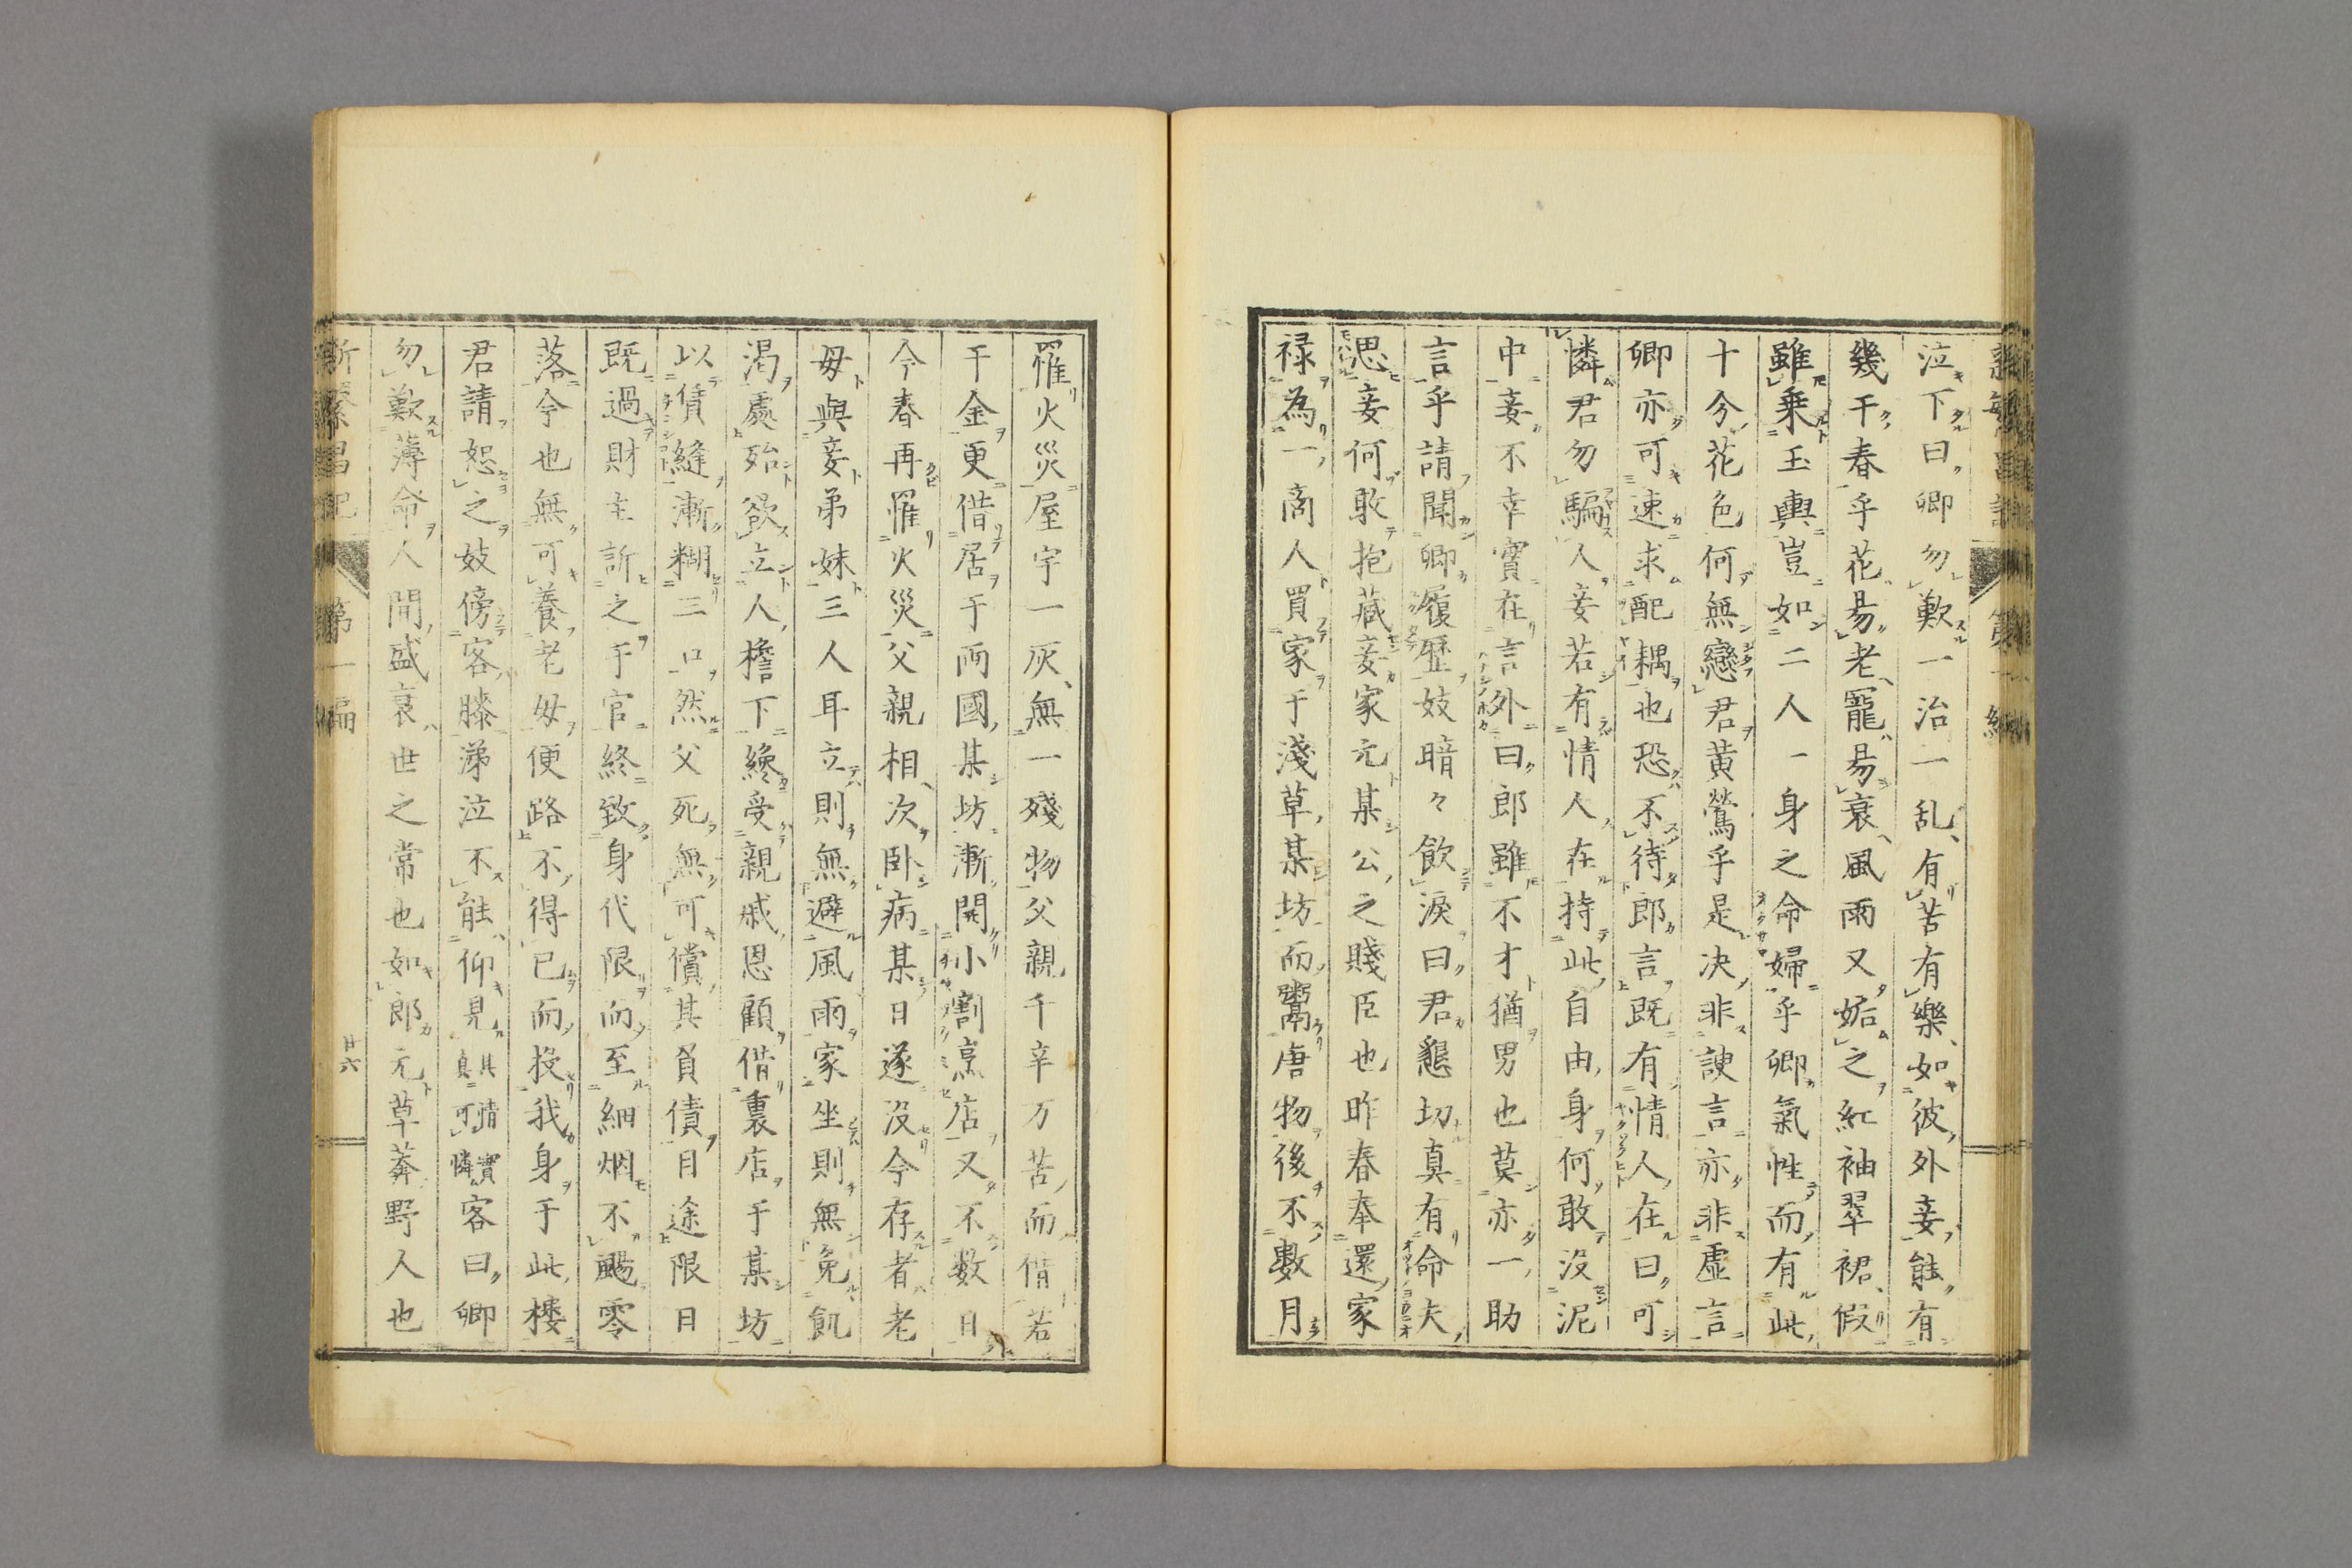 泣下曰卿勿歎一治一乱有苦有樂如彼外妾能有
幾千春乎花易老寵易衰風雨又妬之紅袖翠裙假
雖乗玉輿豈如二人一身之命婦乎卿氣性而有此
十分花色何無戀君黄鶯乎是决非諛言亦非虚言
卿亦可速求配耦也恐不待郎言既有情人在曰可
憐君勿騙人妾若有情人在持此自由身何敢没泥
中妾不幸實在言外曰郎雖不才猶男也莫亦一助
言乎請聞卿履歴妓暗々飲涙曰君懇切真有命夫
思妾何敢抱藏妾家元某公之賤臣也昨春奉還家
禄為一商人買家于淺草某坊而鬻唐物後不數月
罹火災屋宇一灰無一殘物父親千辛万苦而借若
干金更借居于両國某坊漸開小割烹店又不数日
今春再罹火災父親相次卧病某日遂没今存者老
母與妾弟妹三人耳立則無避風雨家坐則無免飢
渇處殆欲立人檐下纔受親戚恩顧借裏店于某坊
以賃縫漸糊三口然父死無可償其負債日途限日
既過財主訴之于官終致身代限而至細烟不颺零
落今也無可養老母便路不得已而投我身于此楼
君請恕之妓傍客膝涕泣不能仰見其情實真可憐客曰卿
勿歎薄命人間盛衰世之常也如郎元草莽野人也
新繁昌記 第一編 廿六